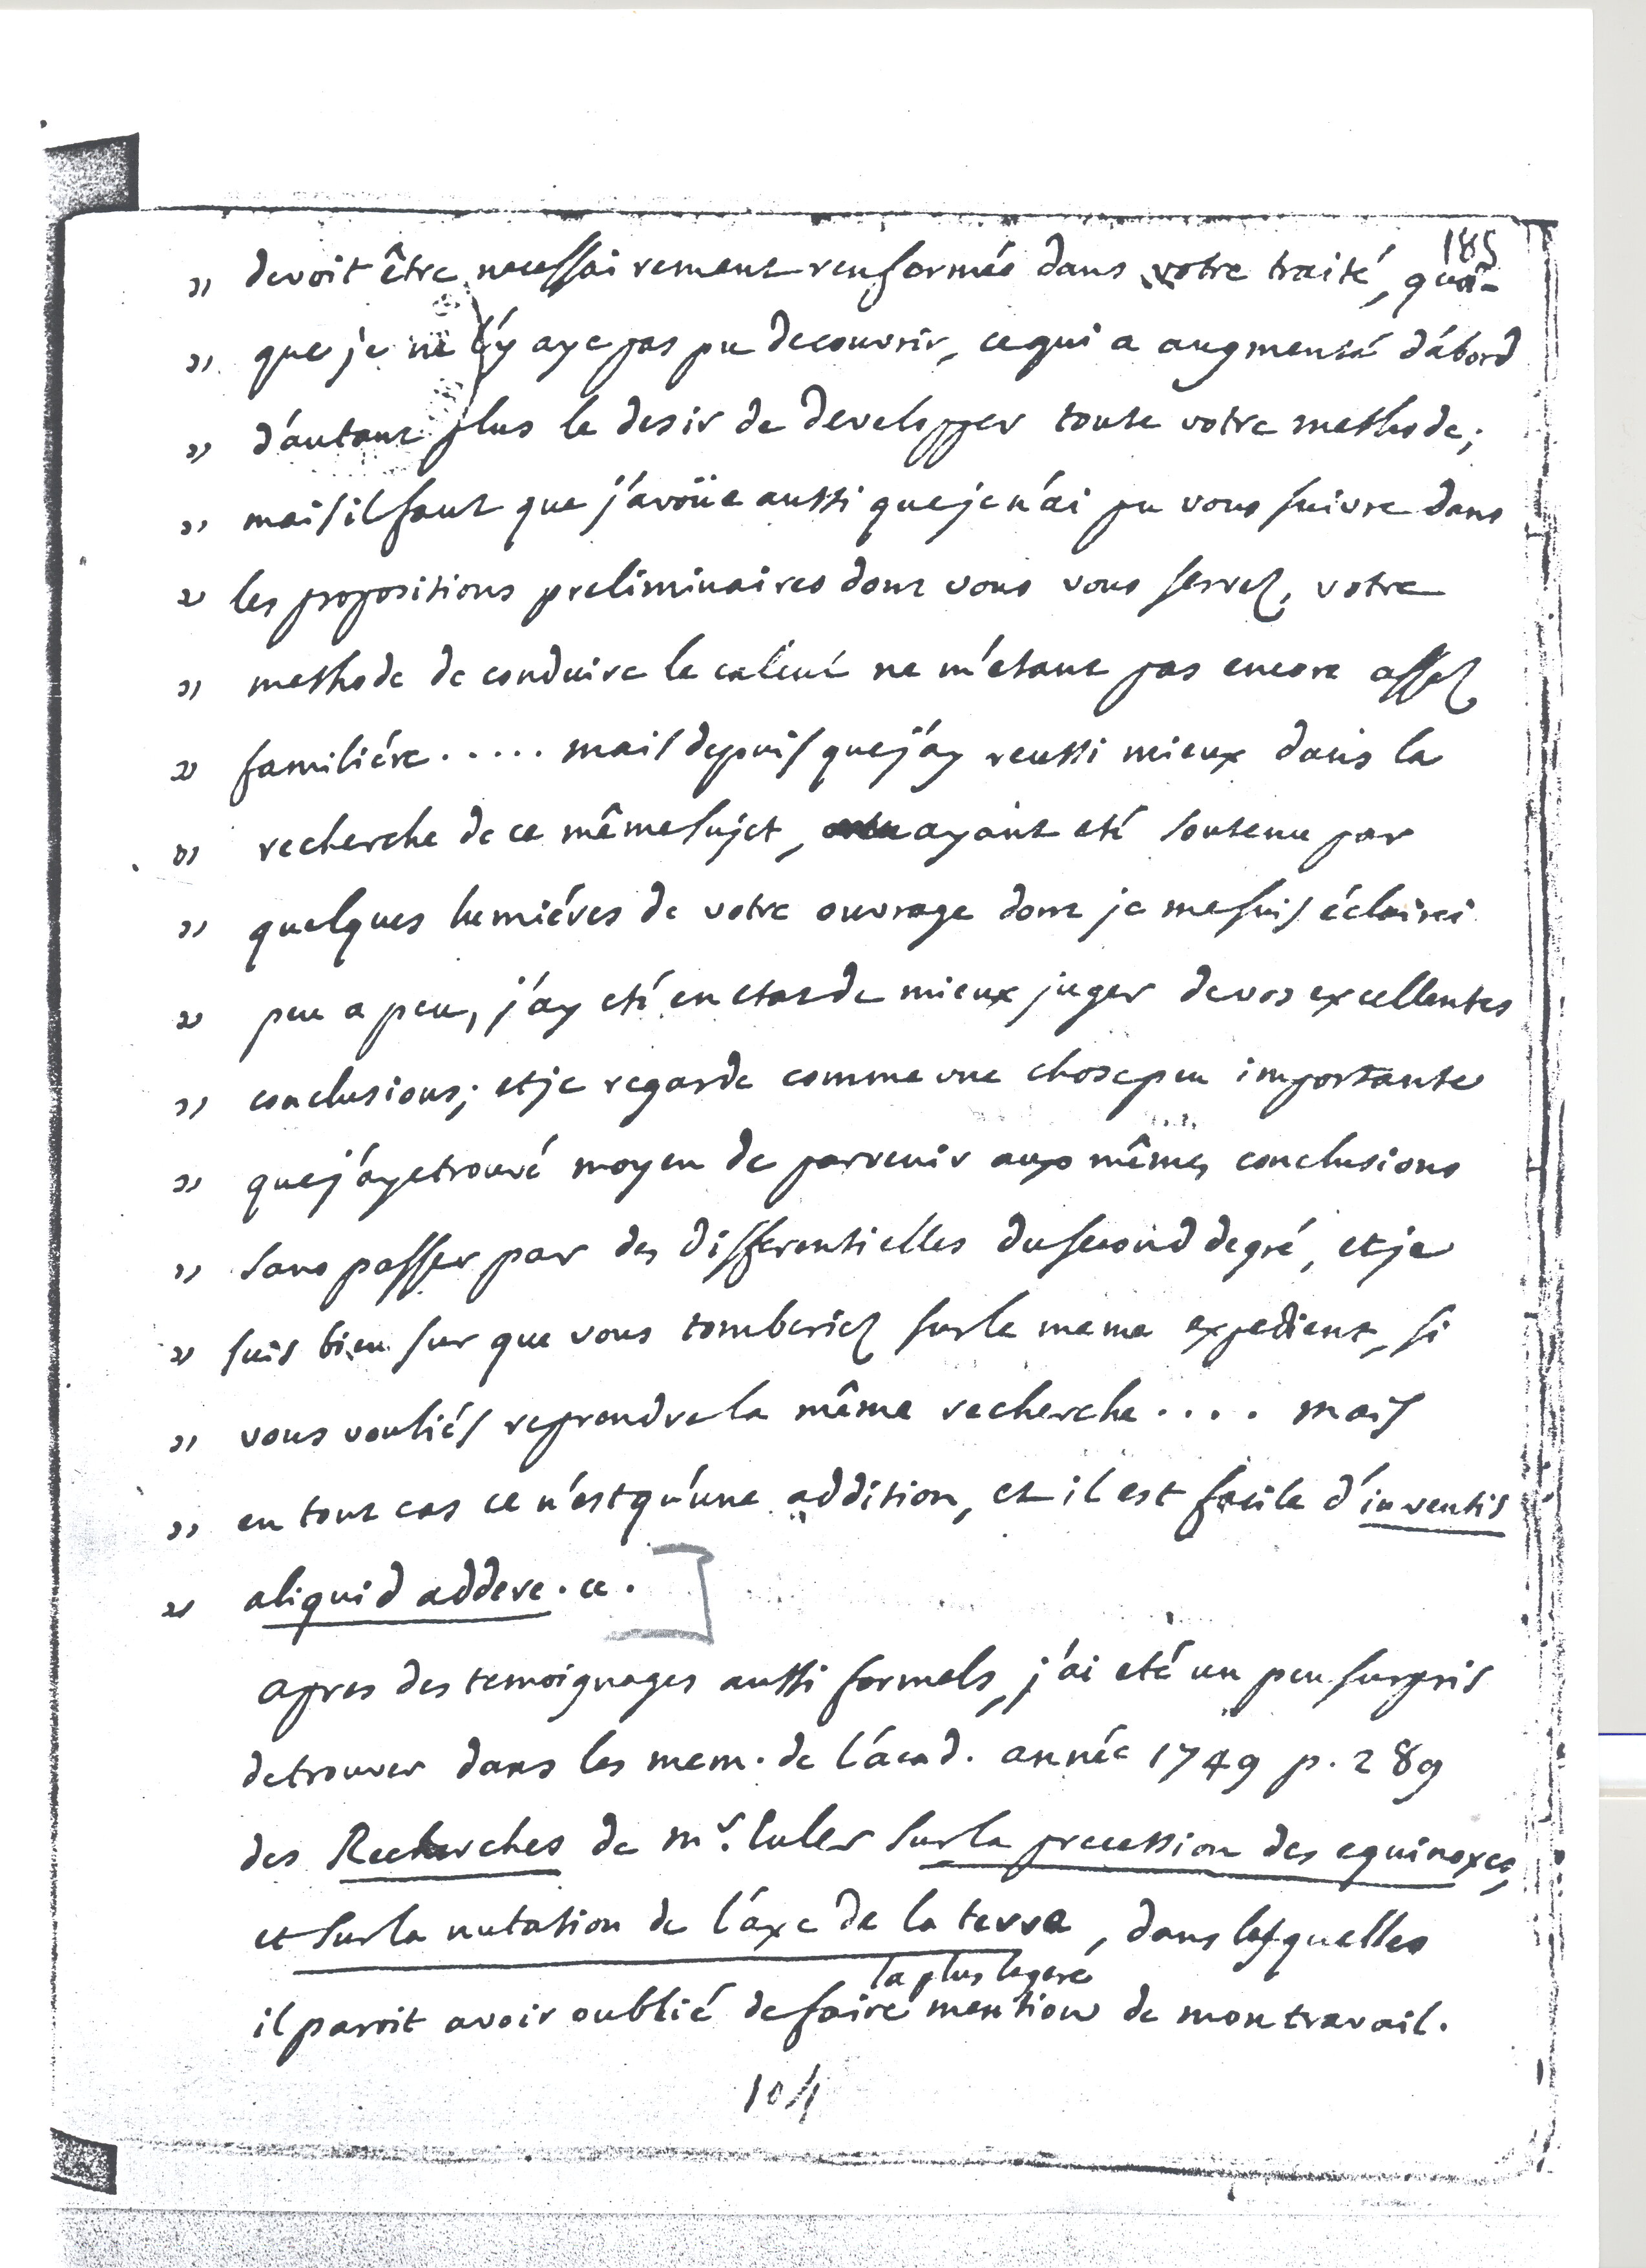 185
" devoit être necessairement renfermée dans votre traité, quoi-
" que je ne l'y aye pas pu decouvrir, ce qui a augmenté d'abord
" d'autant plus le desir de developper toute votre methode;
" mais il faut que j'avoüe aussi que je n'ai pu vous suivre dans
" les propositions preliminaires dont vous vous servez, votre
" methode de conduire le calcul ne m'etant pas encore assez
" familiére ..... mais depuis que j'ay reussi mieux dans la
" recherche de ce même sujet, ayant eté soutenu par
" quelques lumiéres de votre ouvrage dont je me suis éclairci
" peu a peu, j'ay eté en etat de mieux juger de vos excellentes
" conclusions; et je regarde comme une chose peu importante
" que j'aye trouvé moyen de parvenir aux mêmes conclusions
" sans passer par des differentielles du second degré, et je
" suis bien sur que vous tomberiez sur le meme expedient, si
" vous vouliés reprendre la même recherche .... mais
" en tout cas ce n'est qu'une addition, et il est facile d'inventis
" aliquid addere. ce.
apres des temoignages aussi formels, j'ai eté un peu surpris
de trouver dans les mem. de l'acad. année 1749 p. 289
des Recherches de mr. Euler sur la precession des equinoxes,
et sur la nutation de l'axe de la terre, dans lesquelles
la plus legere
il paroit avoir oublié de faire mention de mon travail.
104